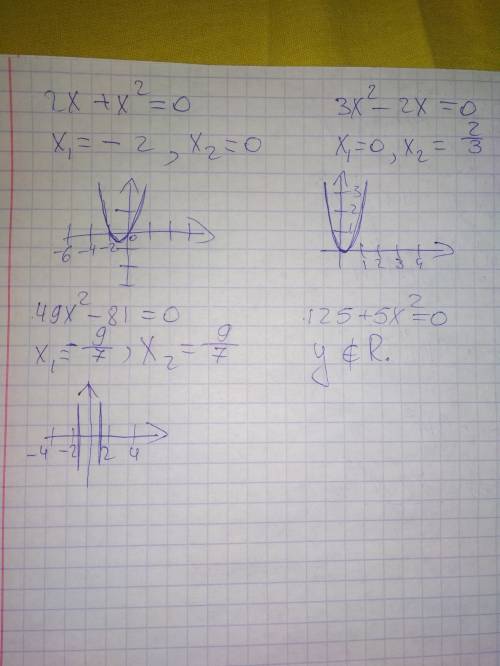 2x + x² = 0
x₁ = - 2 , x₂ = 0
-6 -4 -2 0
3x² - 2x = 0
x₁ = 0 , x₂ = 2/3
3
2
1
1 2 3 4
49x² - 81 = 0
x₁ = - 9/7 , x₂ = 9/7
-4 -2 2 4
125 + 5x² = 0
y ∉ R.